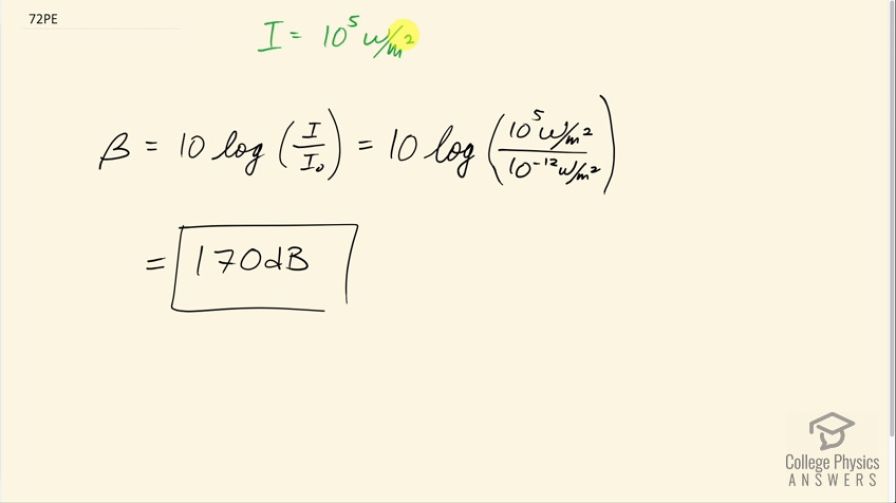 72PE
I = 10⁵ W/m²
β = 10 log (I/I₀) = 10 log (10⁵ W/m² / 10⁻¹² W/m²)
= 170dB
College Physics
ANSWERS